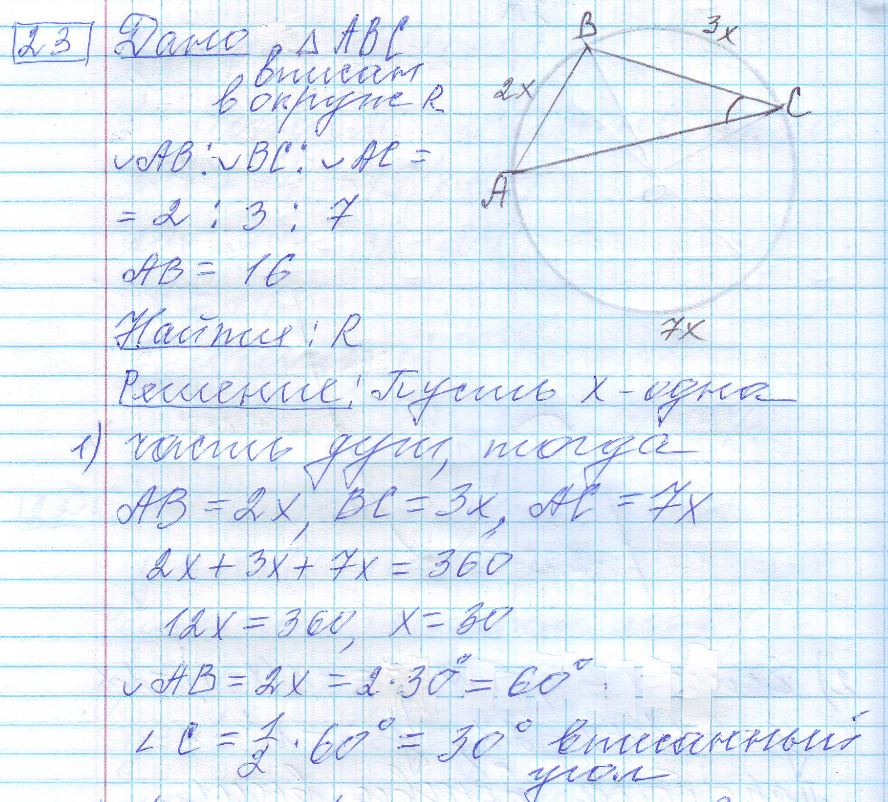 23 Дано △ ABC
вписан
в окруж R
◡AB : ◡BC : ◡AC =
= 2 : 3 : 7
AB = 16
Найти: R
B
3x
2x
C
A
O
7x
Решение: Пусть x - одна
1) часть дуги, тогда
AB = 2x, BC = 3x, AC = 7x
2x + 3x + 7x = 360°
12x = 360, x = 30
◡AB = 2x = 2·30° = 60°
∠C = 1/2 · 60° = 30° вписанный
угол